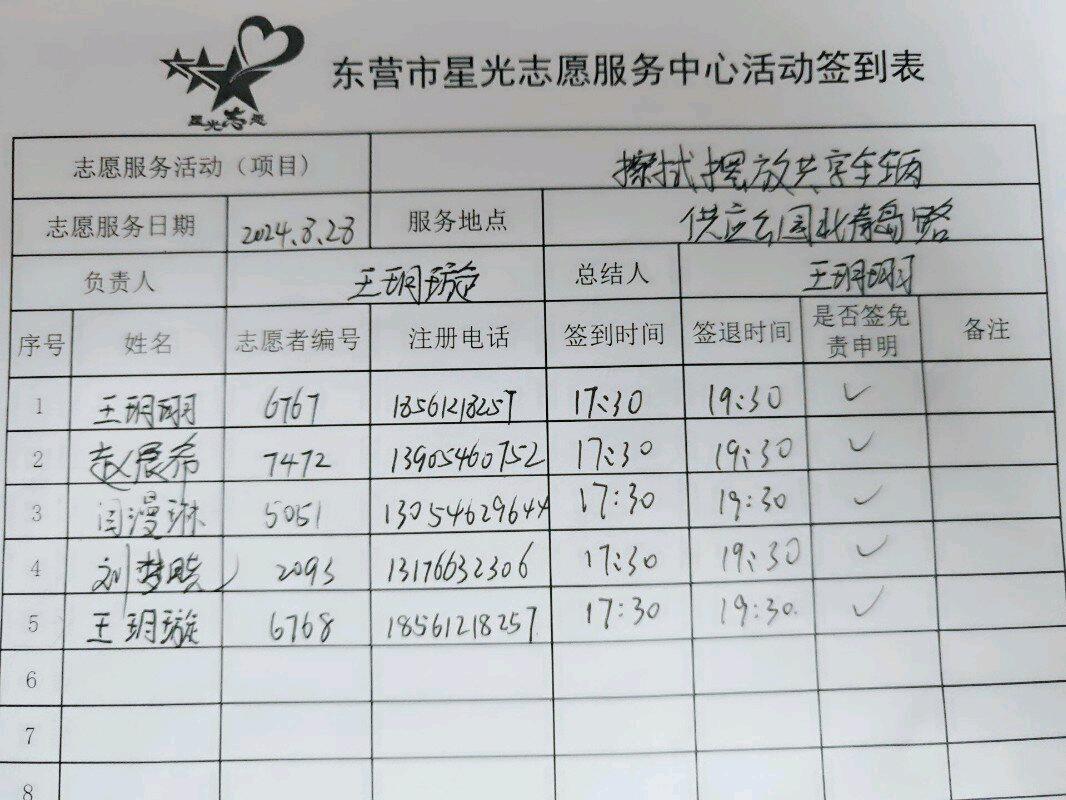 星光志愿
东营市星光志愿服务中心活动签到表
志愿服务活动（项目） 擦拭摆放共享车辆
志愿服务日期 2024.8.28 服务地点 供应公园北青岛路
负责人 王玥璇 总结人 王玥珝
序号 姓名 志愿者编号 注册电话 签到时间 签退时间 是否签免责申明 备注
1 王玥珝 6767 18561218257 17:30 19:30 ✓
2 赵晨希 7472 13905460752 17:30 19:30 ✓
3 闫漫琳 5051 13054629644 17:30 19:30 ✓
4 刘梦 2093 13176632306 17:30 19:30 ✓
5 王玥璇 6768 18561218257 17:30 19:30 ✓
6
7
8